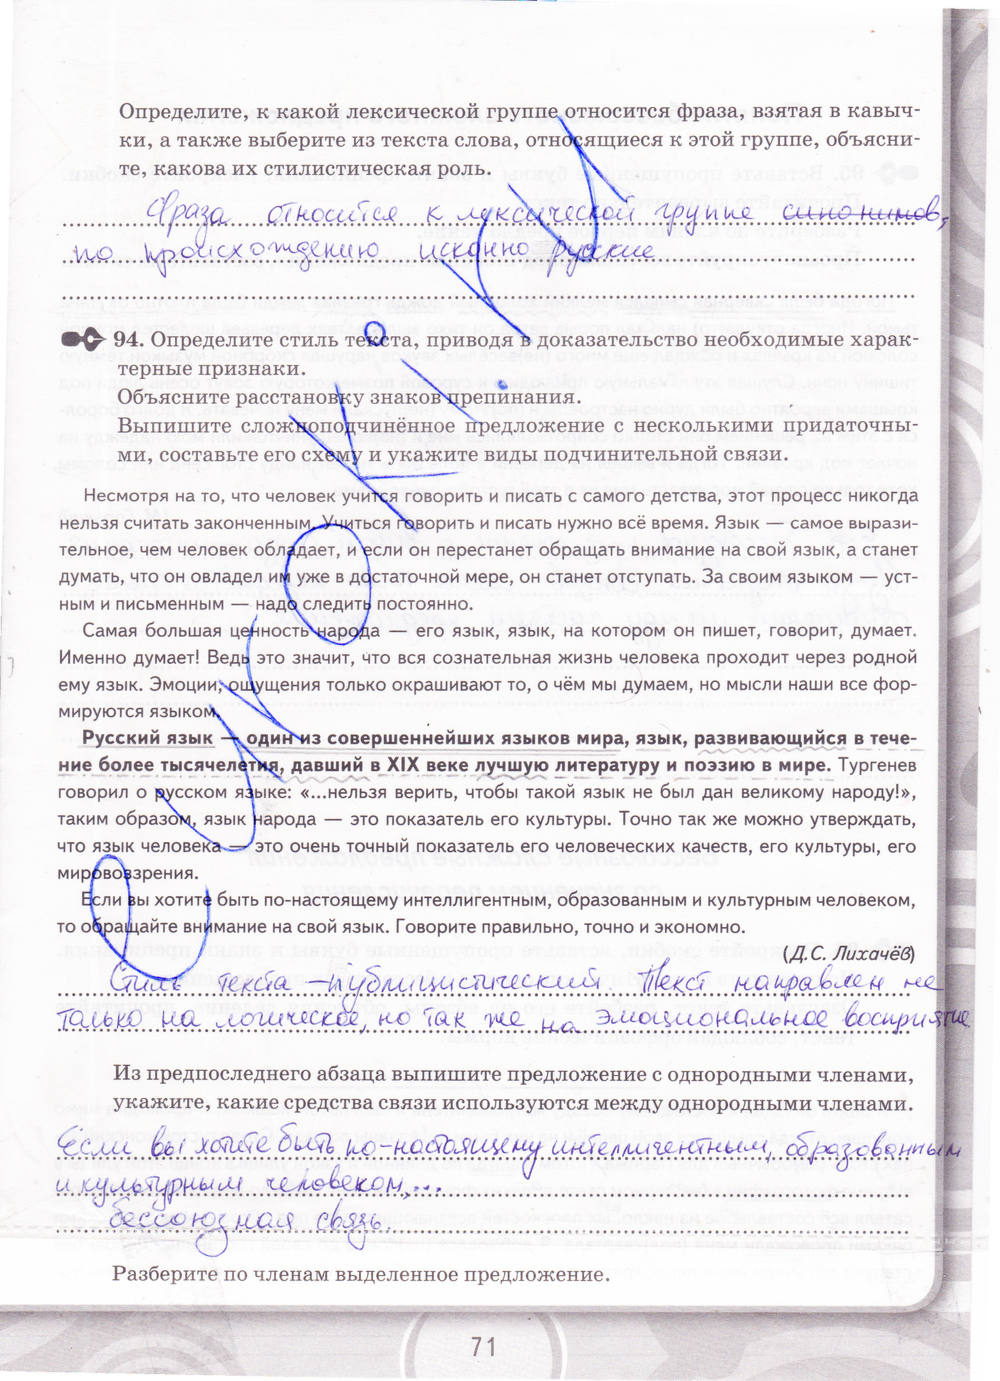 Определите, к какой лексической группе относится фраза, взятая в кавыч-
ки, а также выберите из текста слова, относящиеся к этой группе, объясни-
те, какова их стилистическая роль.
Фраза относится к лексической группе синонимов,
по происхождению исконно русские
94. Определите стиль текста, приводя в доказательство необходимые харак-
терные признаки.
Объясните расстановку знаков препинания.
Выпишите сложноподчинённое предложение с несколькими придаточны-
ми, составьте его схему и укажите виды подчинительной связи.
Несмотря на то, что человек учится говорить и писать с самого детства, этот процесс никогда
нельзя считать законченным. Учиться говорить и писать нужно всё время. Язык — самое вырази-
тельное, чем человек обладает, и если он перестанет обращать внимание на свой язык, а станет
думать, что он овладел им уже в достаточной мере, он станет отступать. За своим языком — уст-
ным и письменным — надо следить постоянно.
Самая большая ценность народа — его язык, язык, на котором он пишет, говорит, думает.
Именно думает! Ведь это значит, что вся сознательная жизнь человека проходит через родной
ему язык. Эмоции, ощущения только окрашивают то, о чём мы думаем, но мысли наши все фор-
мируются языком.
Русский язык — один из совершеннейших языков мира, язык, развивающийся в тече-
ние более тысячелетия, давший в XIX веке лучшую литературу и поэзию в мире. Тургенев
говорил о русском языке: «...нельзя верить, чтобы такой язык не был дан великому народу!»,
таким образом, язык народа — это показатель его культуры. Точно так же можно утверждать,
что язык человека — это очень точный показатель его человеческих качеств, его культуры, его
мировоззрения.
Если вы хотите быть по-настоящему интеллигентным, образованным и культурным человеком,
то обращайте внимание на свой язык. Говорите правильно, точно и экономно.
(Д.С. Лихачёв)
Стиль текста – публицистический. Текст направлен не
только на логическое, но так же на эмоциональное восприятие
Из предпоследнего абзаца выпишите предложение с однородными членами,
укажите, какие средства связи используются между однородными членами.
Если вы хотите быть по-настоящему интеллигентным, образованным
и культурным человеком,...
бессоюзная связь.
Разберите по членам выделенное предложение.
71